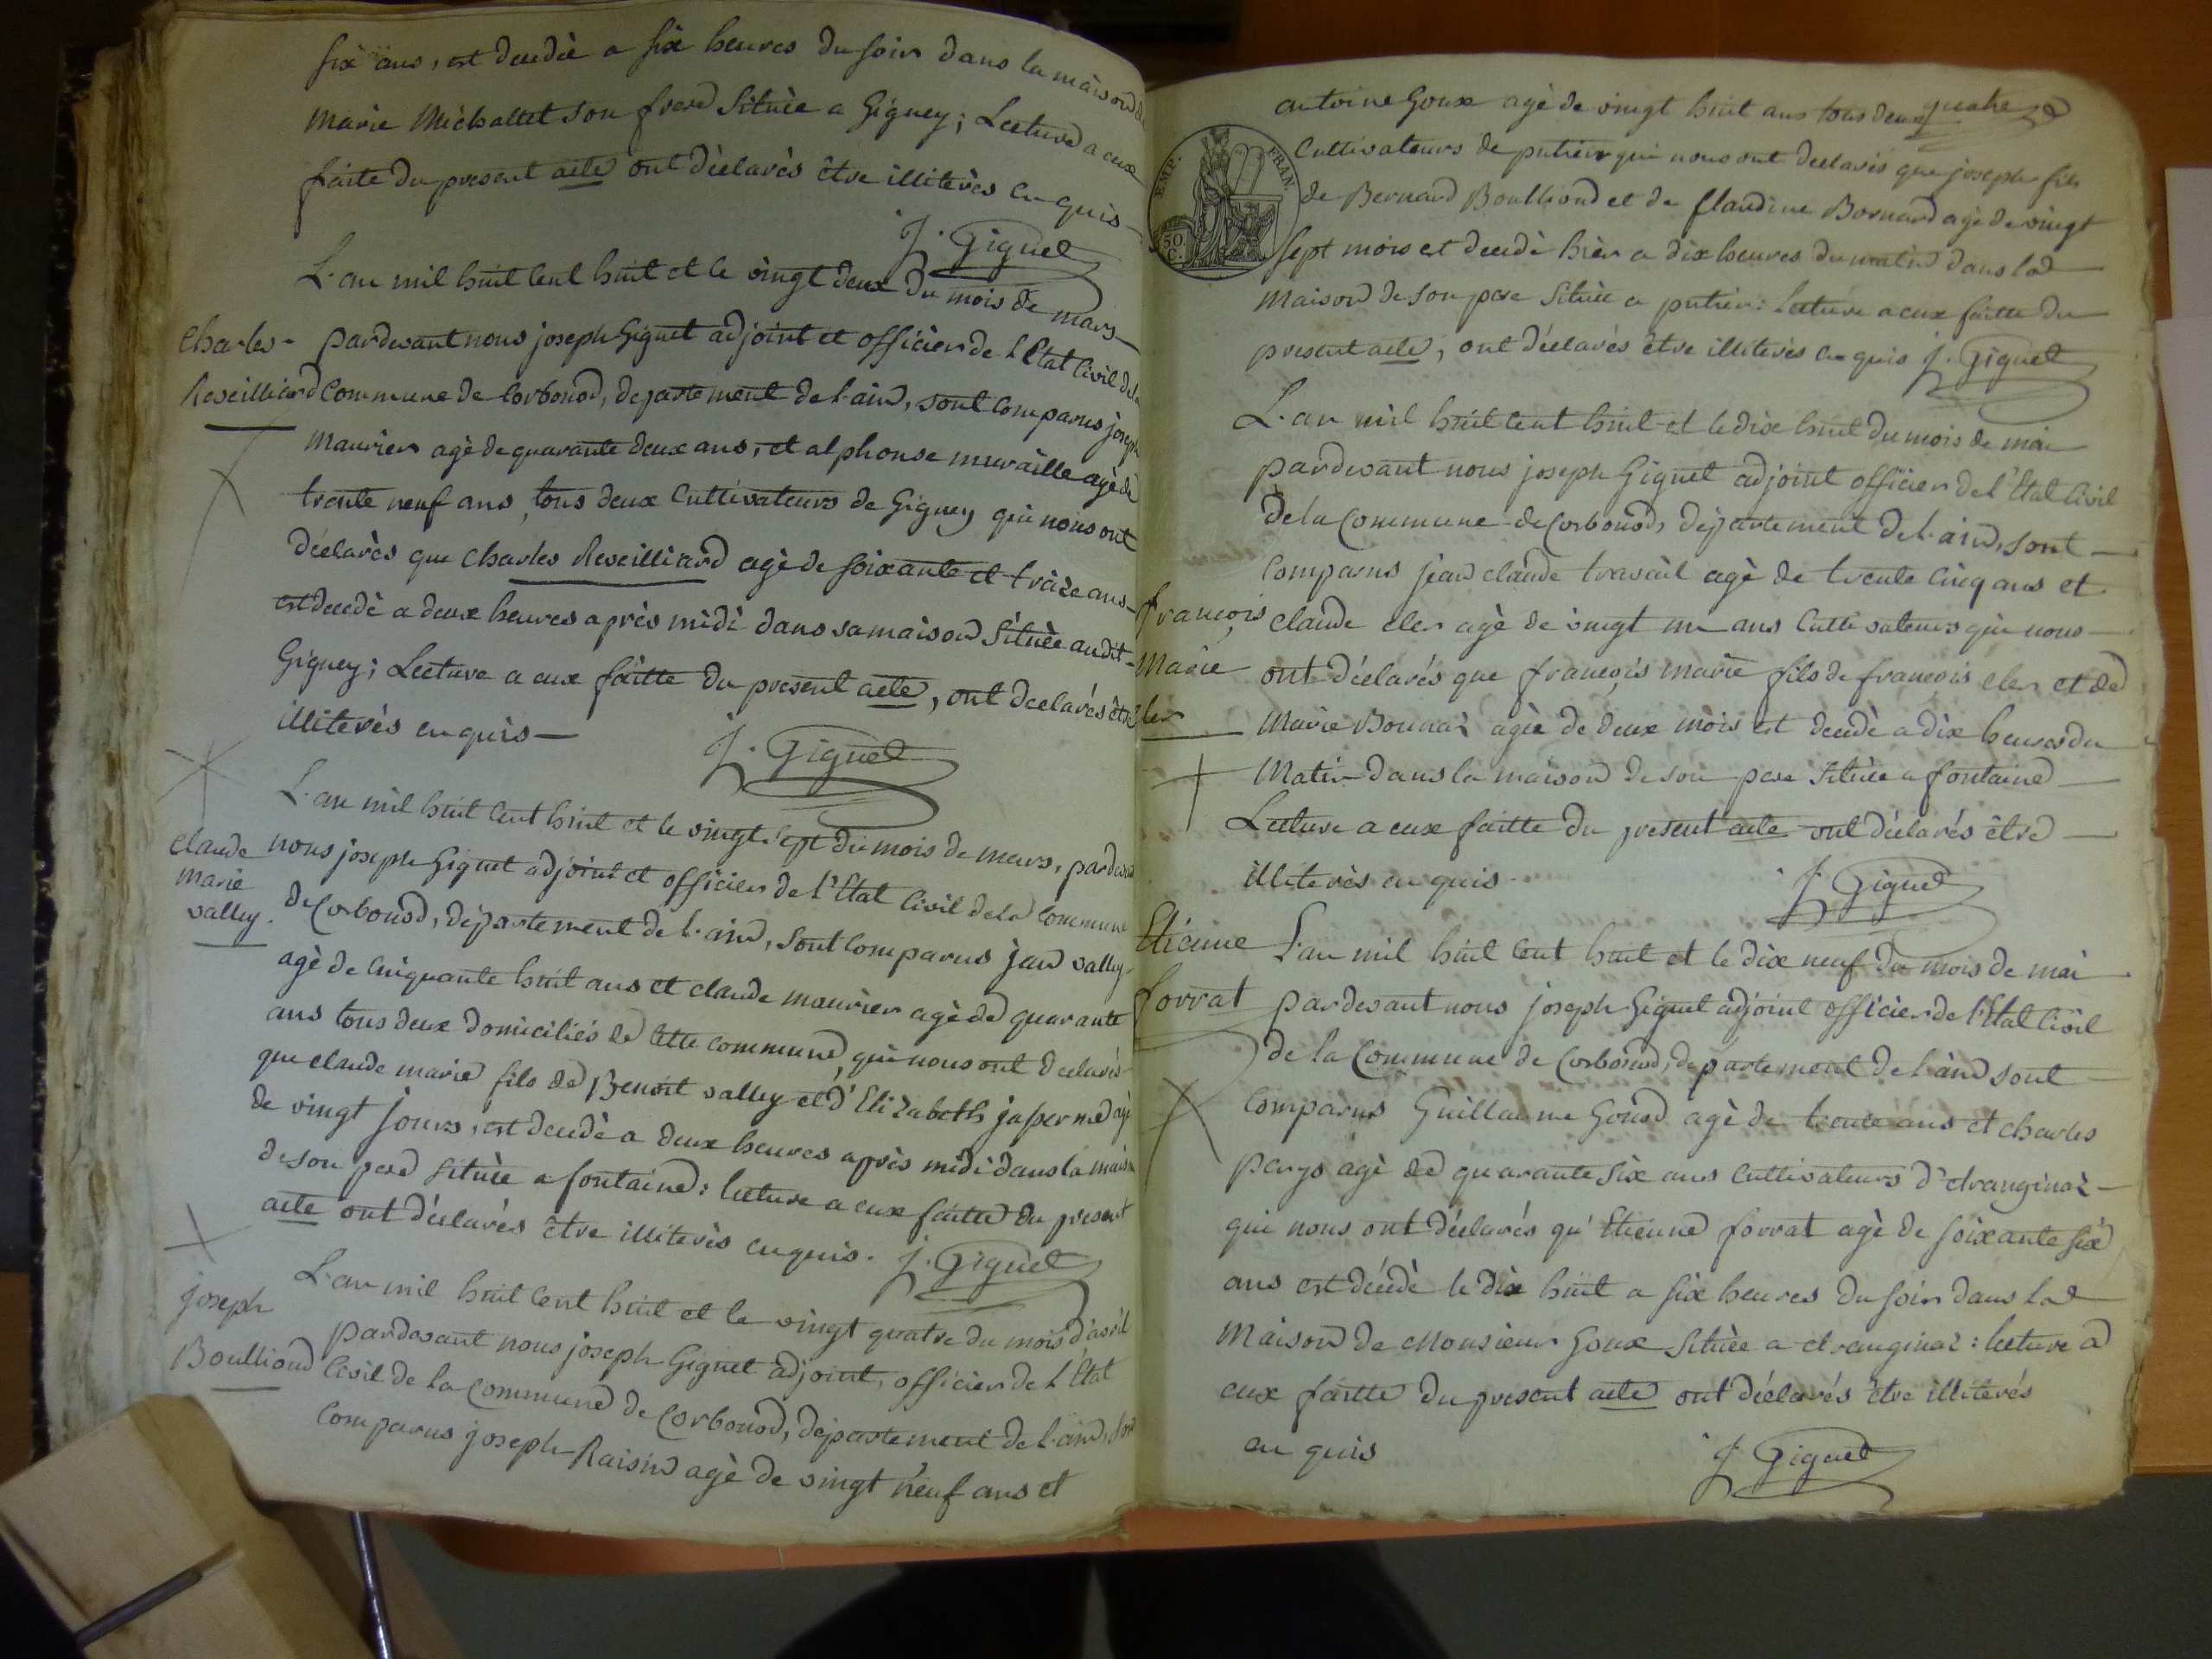 six ans, est decedè a six heures du soir dans la maison de
Marie Michallet son frere Situèe a Gigney; Lecture a eux
faite du present acte ont dèclarès être illiterès enquis
J. Giguet
L'an mil huit cent huit et le vingt deux du mois de mars
Charles pardevant nous joseph Giguet adjoint et officier de l'Etat Civil dela
Reveilliard Commune de Corbonod, departement de l'ain, sont Comparus joseph
maurier agè de quarante deux ans, et alphonse muraille agè de
trente neuf ans, tous deux Cultivateurs de Gigney qui nous ont
dèclarès que Charles Reveilliard agè de soixante et traize ans
est decedè a deux heures après midi dans sa maison Situèe audit
Gigney; Lecture a eux faitte du present acte, ont declarés être
illiterès enquis
J. Giguet
L'an mil huit Cent huit et le vingt sept du mois de mars, pardevant
Claude nous joseph Giguet adjoint et officier de l'Etat Civil dela Commune
marie
valley. de Corbonod, dèpartement de l'ain, sont Comparus jean valley
agè de Cinquante huit ans et claude maurier agè de quarante
ans tous deux domiciliés de Cette Commune, qui nous ont declarès
que claude marie fils de Benoit valley et d'Elizabeth japerne agè
de vingt jours, est decedè a deux heures après midi dans la maison
de son pere Situèe a fontaine: lecture a eux faitte du present
acte ont dèclarès être illiterès enquis. J. Giguet
L'an mil huit Cent huit et le vingt quatre du mois d'avril
joseph pardevant nous joseph Giguet adjoint, officier de l'Etat
Boullioud Civil de la Commune de Corbonod, dèpartement de l'ain, sont
Comparus joseph Raisin agè de vingt neuf ans et
quatre
antoine Goux agè de vingt huit ans tous deux
Cultivateurs de putier qui nous ont declarès que joseph fils
de Bernard Boullioud et de Claudine Bornard agè de vingt
sept mois est decedè hièr a dix heures du matin dans la
Maison de son pere Situèe a putier: lecture a eux faitte du
present acte, ont dèclarés être illiterès enquis J. Giguet
EMP. FRAN.
50 C.
L'an mil huit Cent huit et le dix huit du mois de mai
pardevant nous joseph Giguet adjoint officier de l'Etat Civil
de la Commune de Corbonod, dèpartement de l'ain, sont
Comparus jean claude travail agè de trente Cinq ans et
françois claude cler agè de vingt un ans Cultivateurs qui nous
Marie ont dèclarés que françois marie fils de françois cler et de
Cler Marie Bonnaz agèe de deux mois est decedè a dix heures du
Matin dans la maison de son pere Situèe a fontaine
Lecture a eux faitte du present acte ont dèclarés être
illiterès enquis
J Giguet
Etienne L'an mil huit Cent huit et le dix neuf du mois de mai
forrat pardevant nous joseph Giguet adjoint officier de l'Etat Civil
de la Commune de Corbonod, departement de l'ain sont
Comparus Guillaume Gonod agè de trente ans et charles
perys agè de quarante six ans Cultivateurs d'etranginaz
qui nous ont dèclarés qu'Etienne forrat agè de soixante six
ans est décédè le dix huit a six heures du soir dans la
Maison de Monsieur Goux Situèe a etranginaz: lecture a
eux faitte du present acte ont dèclarés être illiterés
enquis
J Giguet